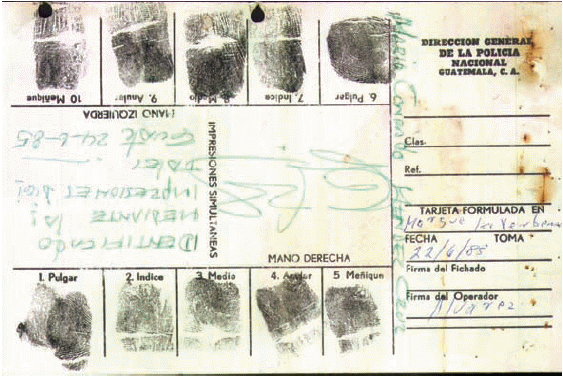 DIRECCION GENERAL
DE LA POLICIA
NACIONAL
GUATEMALA, C. A.
Clas.
Ref.
TARJETA FORMULADA EN
Morgue la Verbena
FECHA TOMA
22/6/85
Firma del Fichado
Firma del Operador
Alvarez
6. Pulgar
7. Indice
8. Medio
9. Anular
10 Meñique
MANO IZQUIERDA
IMPRESIONES SIMULTANEAS
IDENTIFICADO
MEDIANTE las
IMPRESIONES DIGI
TALES
Guate 24-6-85
MANO DERECHA
1. Pulgar
2. Indice
3. Medio
4. Anular
5 Meñique